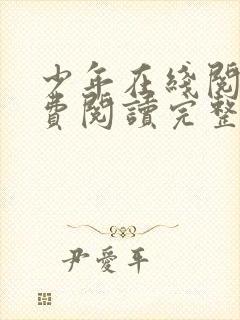 少年在綫閱
費閱讀完整
尹愛平